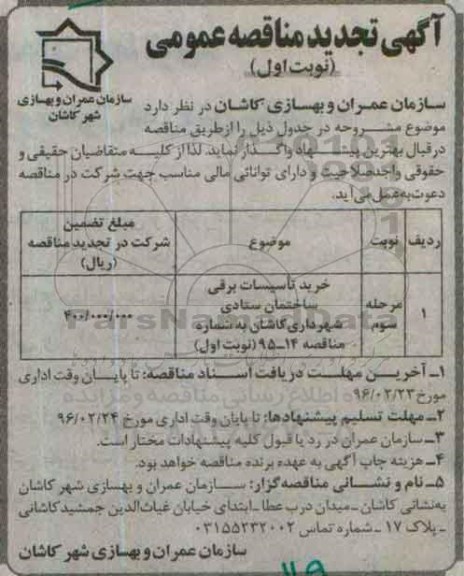 آگهی تجدید مناقصه عمومی
(نوبت اول)
سازمان عمران و بهسازی
شهر کاشان
سازمان عمران و بهسازی کاشان در نظر دارد
موضوع مشروحه در جدول ذیل را از طریق مناقصه
در قبال بهترین پیشنهاد واگذار نماید. لذا از کلیه متقاضیان حقیقی و
حقوقی واجد صلاحیت و دارای توانائی مالی مناسب جهت شرکت در مناقصه
دعوت به عمل می آید.
ردیف نوبت موضوع مبلغ تضمین شرکت در تجدید مناقصه (ریال)
۱ مرحله سوم خرید تأسیسات برقی ساختمان ستادی شهرداری کاشان به شماره مناقصه ۱۴-۹۵ (نوبت اول) ۴۰۰/۰۰۰/۰۰۰
۱- آخرین مهلت دریافت اسناد مناقصه: تا پایان وقت اداری
مورخ ۹۶/۰۲/۲۳
۲- مهلت تسلیم پیشنهادها: تا پایان وقت اداری مورخ ۹۶/۰۲/۲۴
۳- سازمان عمران در رد یا قبول کلیه پیشنهادات مختار است.
۴- هزینه چاپ آگهی به عهده برنده مناقصه خواهد بود.
۵- نام و نشانی مناقصه گزار: سازمان عمران و بهسازی شهر کاشان
به نشانی کاشان - میدان درب عطا - ابتدای خیابان غیاث الدین جمشید کاشانی
- پلاک ۱۷ - شماره تماس ۰۳۱۵۵۲۳۲۰۰۲
سازمان عمران و بهسازی شهر کاشان
ParsNamadData